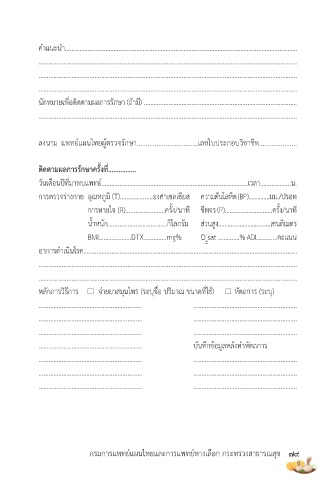 คำแนะนำ
นัดหมายเพื่อติดตามผลการรักษา (ถ้ามี)
ลงนาม แพทย์แผนไทยผู้ตรวจรักษา เลขใบประกอบวิชาชีพ
ติดตามผลการรักษาครั้งที่
วันเดือนปีที่มาพบแพทย์ เวลา น.
การตรวจร่างกาย อุณหภูมิ (T) องศาเซลเซียส ความดันโลหิต (BP) มม./ปรอท
การหายใจ (R) ครั้ง/นาที ชีพจร (P) ครั้ง/นาที
น้ำหนัก กิโลกรัม ส่วนสูง เซนติเมตร
BMI DTX mg% O₂ sat % ADL คะแนน
อาการสำคัญโรค
หลักการวิธีการ ☐ จ่ายยาสมุนไพร (ระบุชื่อ ปริมาณ ขนาดที่ใช้) ☐ หัตถการ (ระบุ)
บันทึกข้อมูลหลังทำหัตถการ
กรมการแพทย์แผนไทยและการแพทย์ทางเลือก กระทรวงสาธารณสุข ๗๙